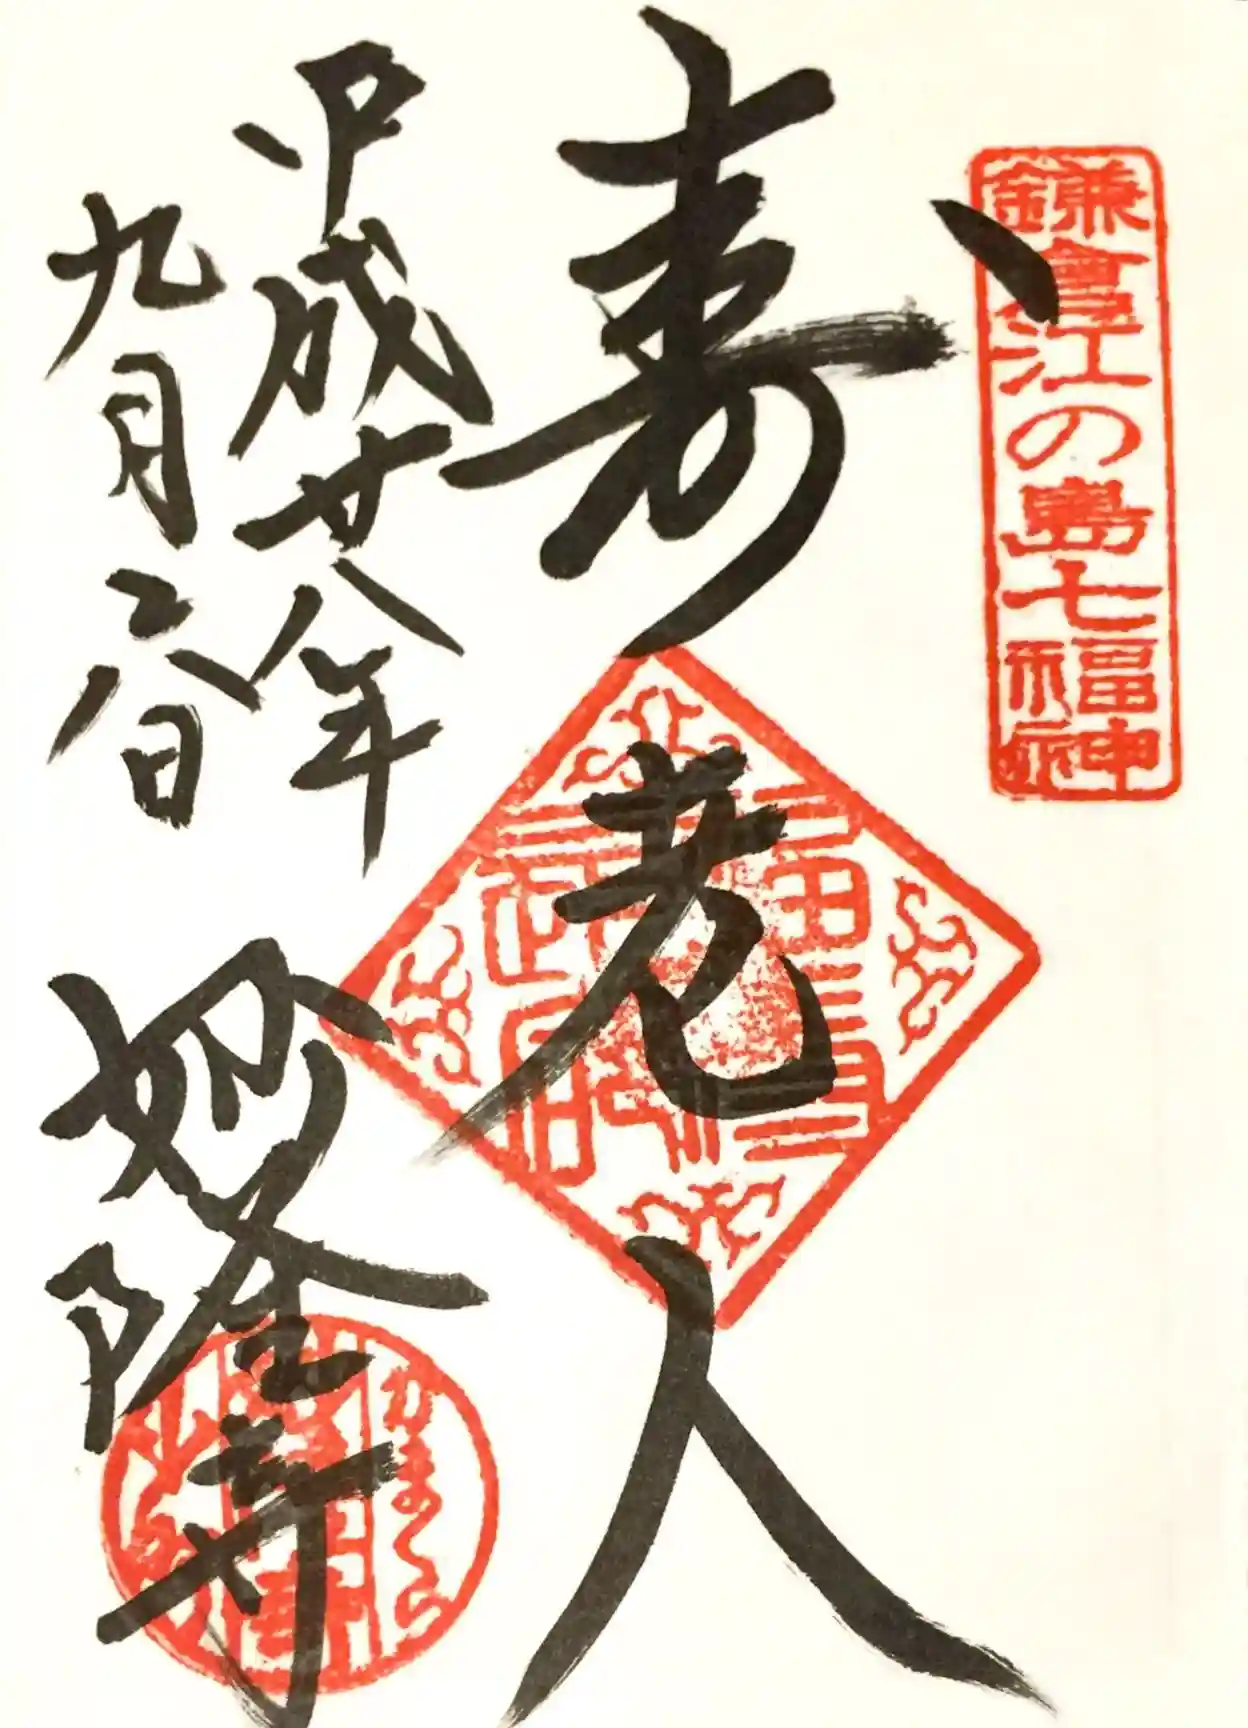 鎌倉江の島七福神
寿老人
平成廿八年
九月二八日
妙隆寺
かまくら